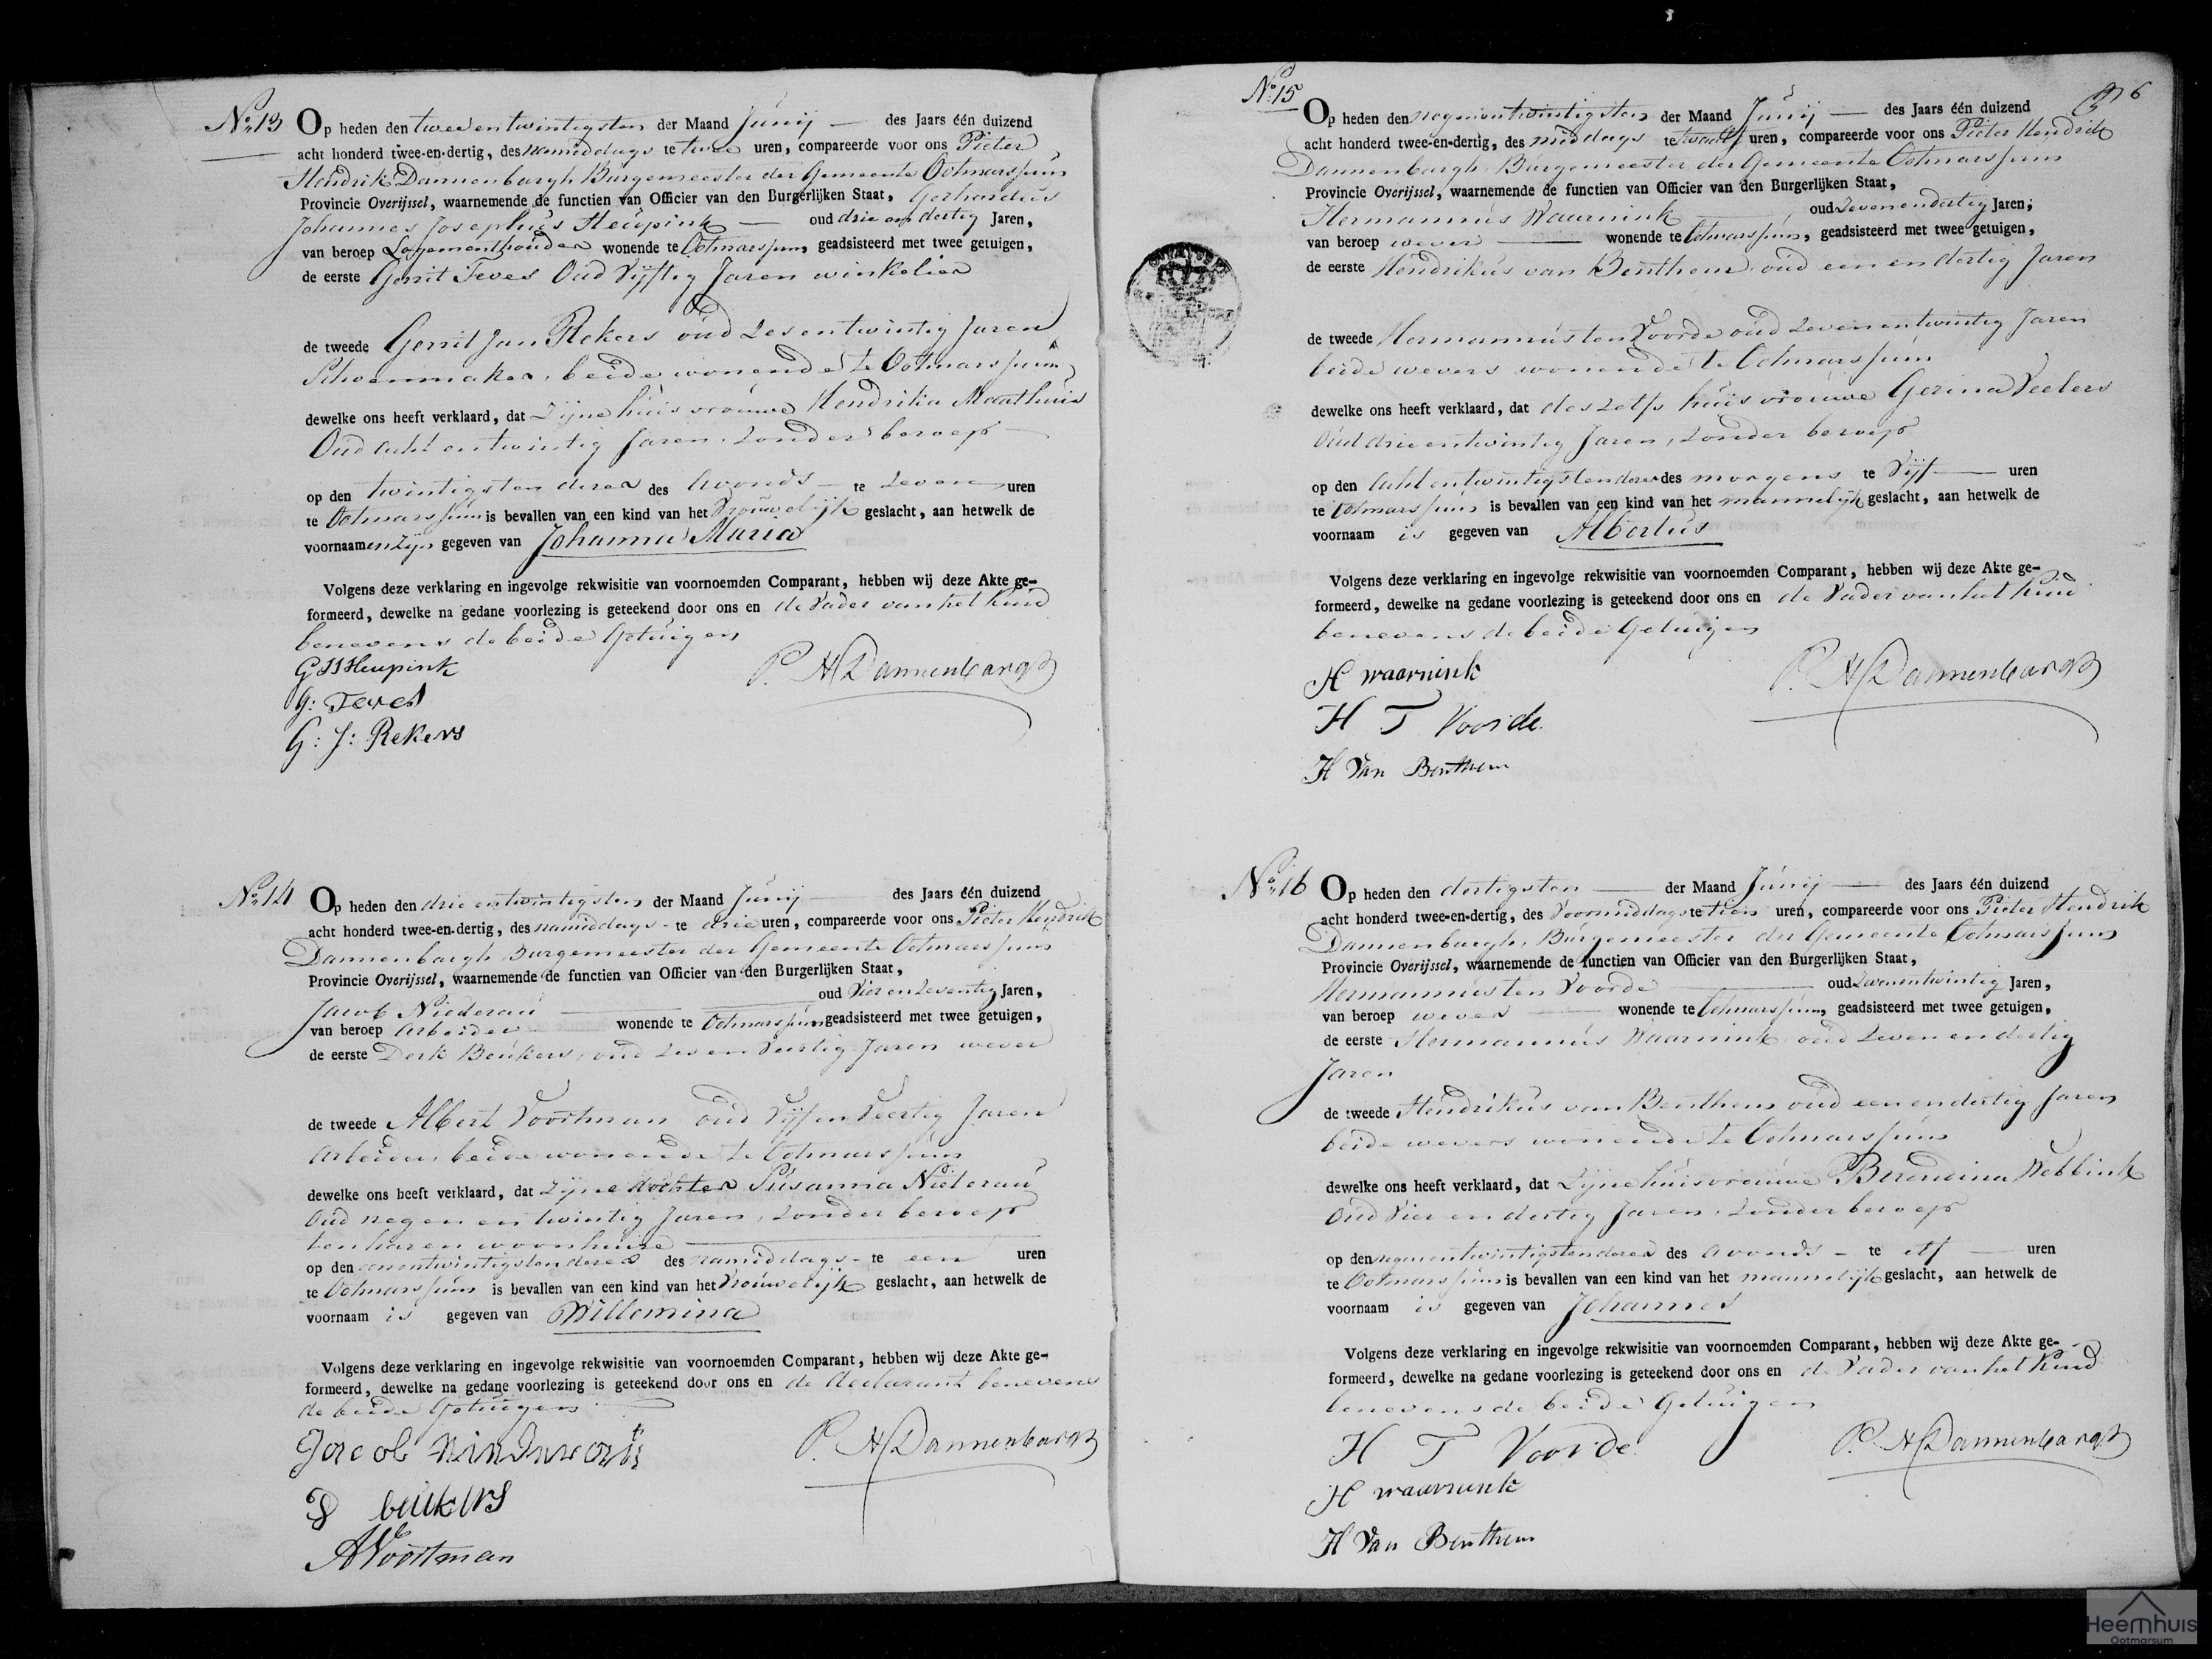 No. 13 Op heden den twee en twintigsten der Maand Junij des Jaars één duizend
acht honderd twee-en-dertig, des namiddags te twee uren, compareerde voor ons Pieter
Hendrik Dannenbargh Burgemeester der Gemeente Ootmarssum
Provincie Overijssel, waarnemende de functien van Officier van den Burgerlijken Staat, Gerhardus
Johannes Josephus Heupink oud drie en dertig Jaren,
van beroep Logementhouder wonende te Ootmarssum, geadsisteerd met twee getuigen,
de eerste Gerrit Teves Oud Vijftig Jaren winkelier
de tweede Gerrit Jan Rekers oud Zes en twintig Jaren
Schoenmaker, beide wonende te Ootmarssum
dewelke ons heeft verklaard, dat Zijne huisvrouwe Hendrika Manthuis
Oud acht en twintig Jaren, Zonder beroep
op den twintigsten dezer des Avonds te Zeven uren
te Ootmarssum is bevallen van een kind van het Vrouwelijk geslacht, aan hetwelk de
voornaamen Zijn gegeven van Johanna Maria
Volgens deze verklaring en ingevolge rekwisitie van voornoemden Comparant, hebben wij deze Akte ge-
formeerd, dewelke na gedane voorlezing is geteekend door ons en de Vader van het Kind
benevens de beide Getuigen
GJJ Heupink P. H Dannenbargh
G: Teves
G: J: Rekers
No. 14 Op heden den drie en twintigsten der Maand Junij des Jaars één duizend
acht honderd twee-en-dertig, des namiddags te drie uren, compareerde voor ons Pieter Hendrik
Dannenbargh Burgemeester der Gemeente Ootmarssum
Provincie Overijssel, waarnemende de functien van Officier van den Burgerlijken Staat,
Jacob Niederau oud Vier en Zeventig Jaren,
van beroep Arbeider wonende te Ootmarssum geadsisteerd met twee getuigen,
de eerste Derk Beukers, oud Zes en Veertig Jaren wever
de tweede Albert Voortman oud Vijf en Veertig Jaren
Arbeider, beide wonende te Ootmarssum
dewelke ons heeft verklaard, dat Zijne dochter Susanna Niederau
Oud negen en twintig Jaren, Zonder beroep
ten haren woonhuise
op den een en twintigsten dezer des namiddags te een uren
te Ootmarssum is bevallen van een kind van het Vrouwelijk geslacht, aan hetwelk de
voornaam is gegeven van Willemina
Volgens deze verklaring en ingevolge rekwisitie van voornoemden Comparant, hebben wij deze Akte ge-
formeerd, dewelke na gedane voorlezing is geteekend door ons en de declarant benevens
de beide Getuigen
Jacob P. H Dannenbargh
D beukers
A Voortman
No. 15 Op heden den negen en twintigsten der Maand Junij des Jaars één duizend
acht honderd twee-en-dertig, des middags te twaalf uren, compareerde voor ons Pieter Hendrik
Dannenbargh, Burgemeester der Gemeente Ootmarssum
Provincie Overijssel, waarnemende de functien van Officier van den Burgerlijken Staat,
Hermannus Waarnink oud Zeven en dertig Jaren,
van beroep wever wonende te Ootmarssum, geadsisteerd met twee getuigen,
de eerste Hendrikus van Benthem, oud een en dertig Jaren
de tweede Hermannus ten Voorde oud Zeven en twintig Jaren
beide wevers wonende te Ootmarssum
dewelke ons heeft verklaard, dat deszelfs huisvrouwe Gerina Veelers
Oud drie en twintig Jaren, Zonder beroep
op den Acht en twintigsten dezer des morgens te Vijf uren
te Ootmarssum is bevallen van een kind van het mannelijk geslacht, aan hetwelk de
voornaam is gegeven van Albertus
Volgens deze verklaring en ingevolge rekwisitie van voornoemden Comparant, hebben wij deze Akte ge-
formeerd, dewelke na gedane voorlezing is geteekend door ons en de Vader van het Kind
benevens de beide Getuigen
H waarnink P. H Dannenbargh
H T Voorde
H Van Benthem
No. 16 Op heden den dertigsten der Maand Junij des Jaars één duizend
acht honderd twee-en-dertig, des Voormiddags te tien uren, compareerde voor ons Pieter Hendrik
Dannenbargh, Burgemeester der Gemeente Ootmarssum
Provincie Overijssel, waarnemende de functien van Officier van den Burgerlijken Staat,
Hermannus ten Voorde oud Zeven en twintig Jaren,
van beroep wever wonende te Ootmarssum, geadsisteerd met twee getuigen,
de eerste Hermannus Waarnink oud Zeven en dertig
Jaren
de tweede Hendrikus van Benthem oud een en dertig Jaren
beide wevers wonende te Ootmarssum
dewelke ons heeft verklaard, dat Zijne huisvrouwe Berendina Webbink
Oud Vier en dertig Jaren, Zonder beroep
op den negen en twintigsten dezer des Avonds te elf uren
te Ootmarssum is bevallen van een kind van het mannelijk geslacht, aan hetwelk de
voornaam is gegeven van Johannes
Volgens deze verklaring en ingevolge rekwisitie van voornoemden Comparant, hebben wij deze Akte ge-
formeerd, dewelke na gedane voorlezing is geteekend door ons en de Vader van het Kind
benevens de beide Getuigen
H T Voorde P. H Dannenbargh
H waarnink
H Van Benthem
Heemhuis
Ootmarsum